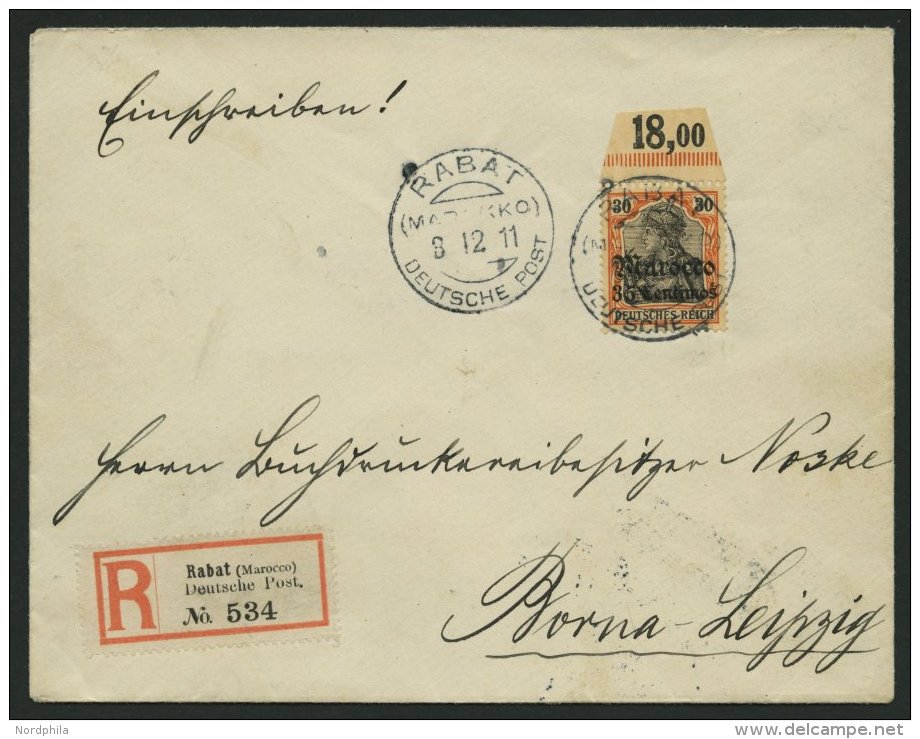 Einschreiben!
18,00
RABAT
(MAROKKO)
8 12 11
DEUTSCHE POST
30 30
Marocco
35 Centimos
DEUTSCHES REICH
DEUTSCHE POST
Herrn Buchdruckereibesitzer Noske
R
Rabat (Marocco)
Deutsche Post.
No. 534
Borna-Leipzig
Nordphila
delcampe.net